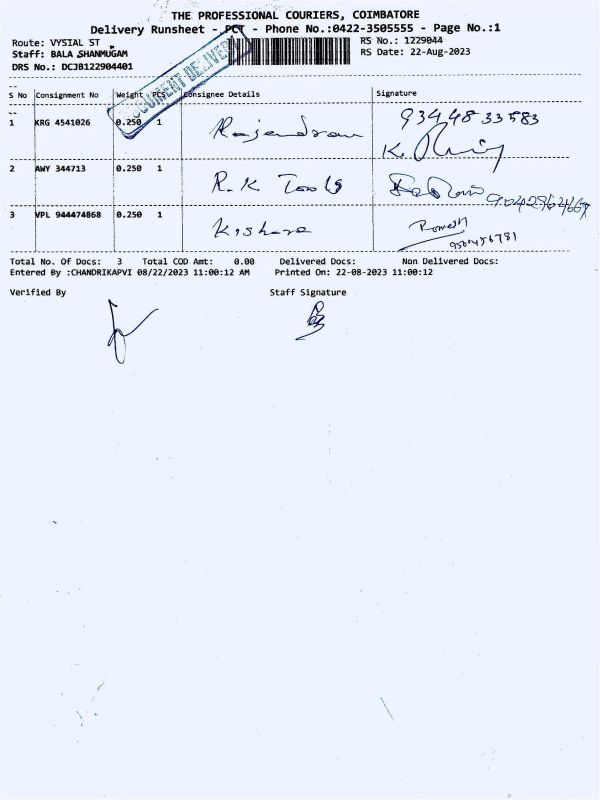 THE PROFESSIONAL COURIERS, COIMBATORE
Delivery Runsheet - PCT - Phone No.:0422-3505555 - Page No.:1
Route: VYSIAL ST RS No.: 1229044
Staff: BALA SHANMUGAM RS Date: 22-Aug-2023
DRS No.: DCJB122904401
DOCUMENT DELIVERY
S No Consignment No Weight PCS Consignee Details Signature
1 KRG 4541026 0.250 1 Rajendran 93448 33583
K.
2 AWY 344713 0.250 1 R.K Tools
3 VPL 944474868 0.250 1 Kishore Romesh
Total No. Of Docs: 3 Total COD Amt: 0.00 Delivered Docs: Non Delivered Docs:
Entered By :CHANDRIKAPVI 08/22/2023 11:00:12 AM Printed On: 22-08-2023 11:00:12
Verified By Staff Signature